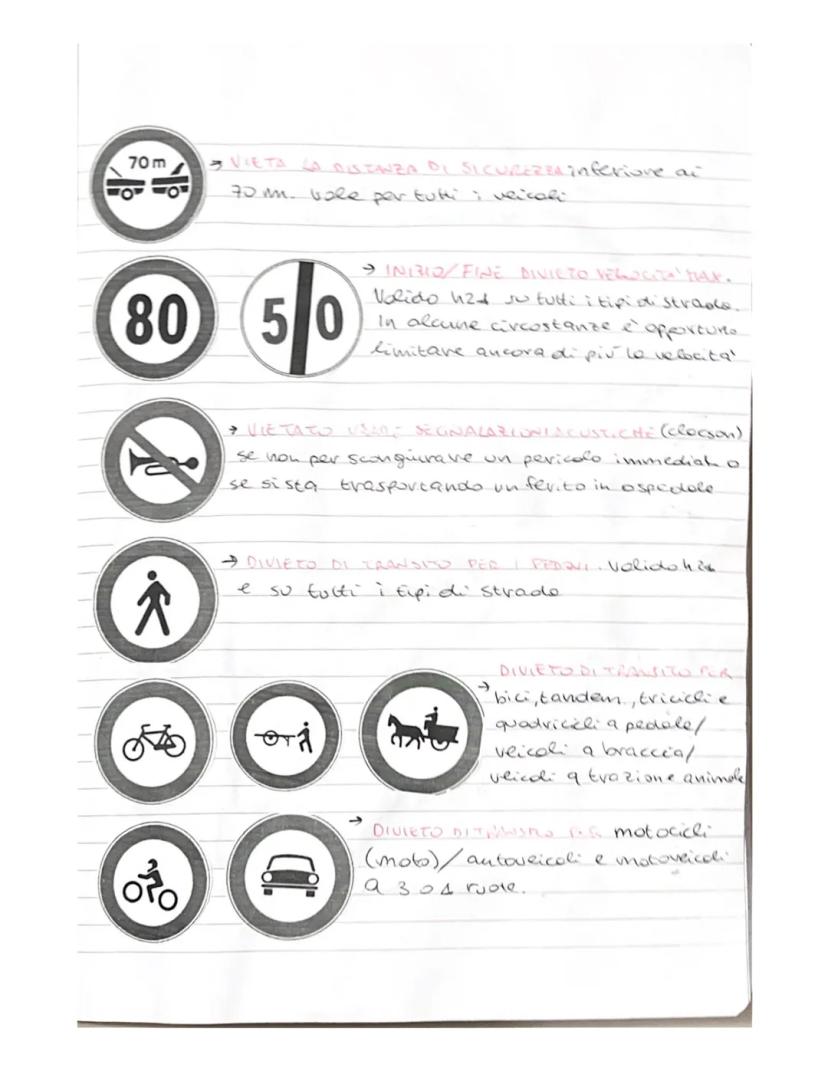 70 m
→ VIETA LA DISTANZA DI SICUREZZA inferiore ai
70 m. vale per tutti i veicoli
80
50
→ INIZIO/FINE DIVIETO VELOCITA' MAX.
Valido h24 su tutti i tipi di strada.
In alcune circostanze è opportuno
limitare ancora di più la velocità
→ VIETATO USARE SEGNALAZIONI ACUSTICHE (clacson)
se non per scongiurare un pericolo immediato o
se si sta trasportando un ferito in ospedale
→ DIVIETO DI TRANSITO PER I PEDONI. Valido h24
e su tutti i tipi di strada
DIVIETO DI TRANSITO PER
→ bici, tandem, tricicli e
quadricicli a pedale/
veicoli a braccia/
veicoli a trazione animale
→ DIVIETO DI TRANSITO PER motocicli
(moto)/ autoveicoli e motoveicoli
a 3 o 4 ruote.